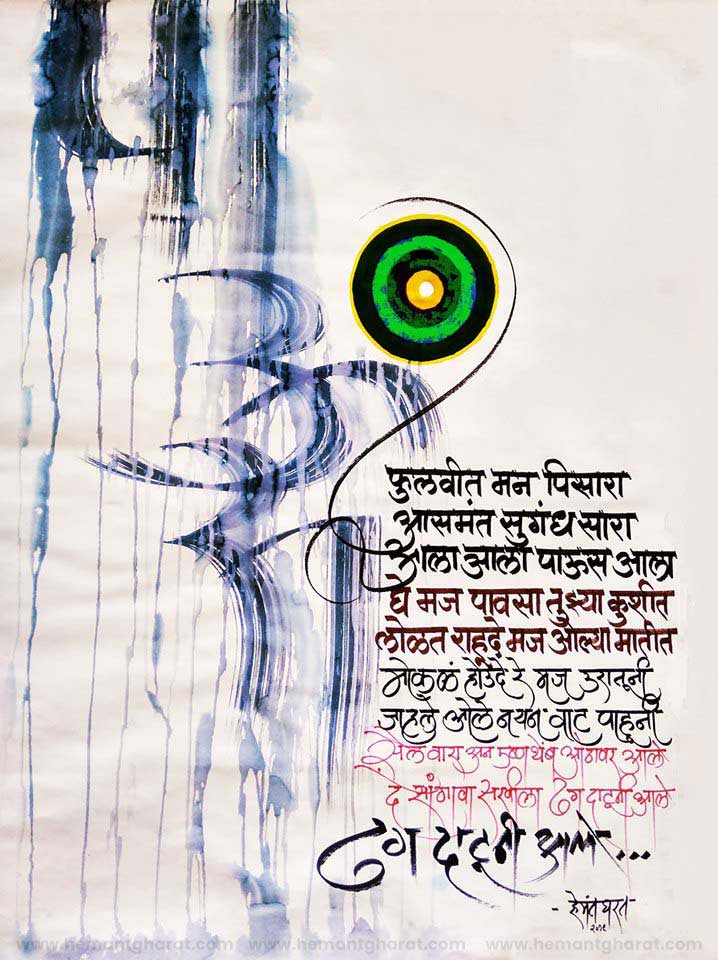 फुलवीत मन पिसारा
आसमंत सुगंध सारा
आला आला पाऊस आला
घे मज पावसा तुझ्या कुशीत
लोळत राहूदे मज ओल्या मातीत
मोकळं होउदे रे मज उरातूनी
जाहले ओले नयन वाट पाहूनी
सैल वारा अन थेंब आले
दे सांगावा सखीला ढग दाटूनी आले
ढग दाटूनी आले...
- हेमंत घरत -
www.hemantgharat.com www.hemantgharat.com www.hemantgharat.com